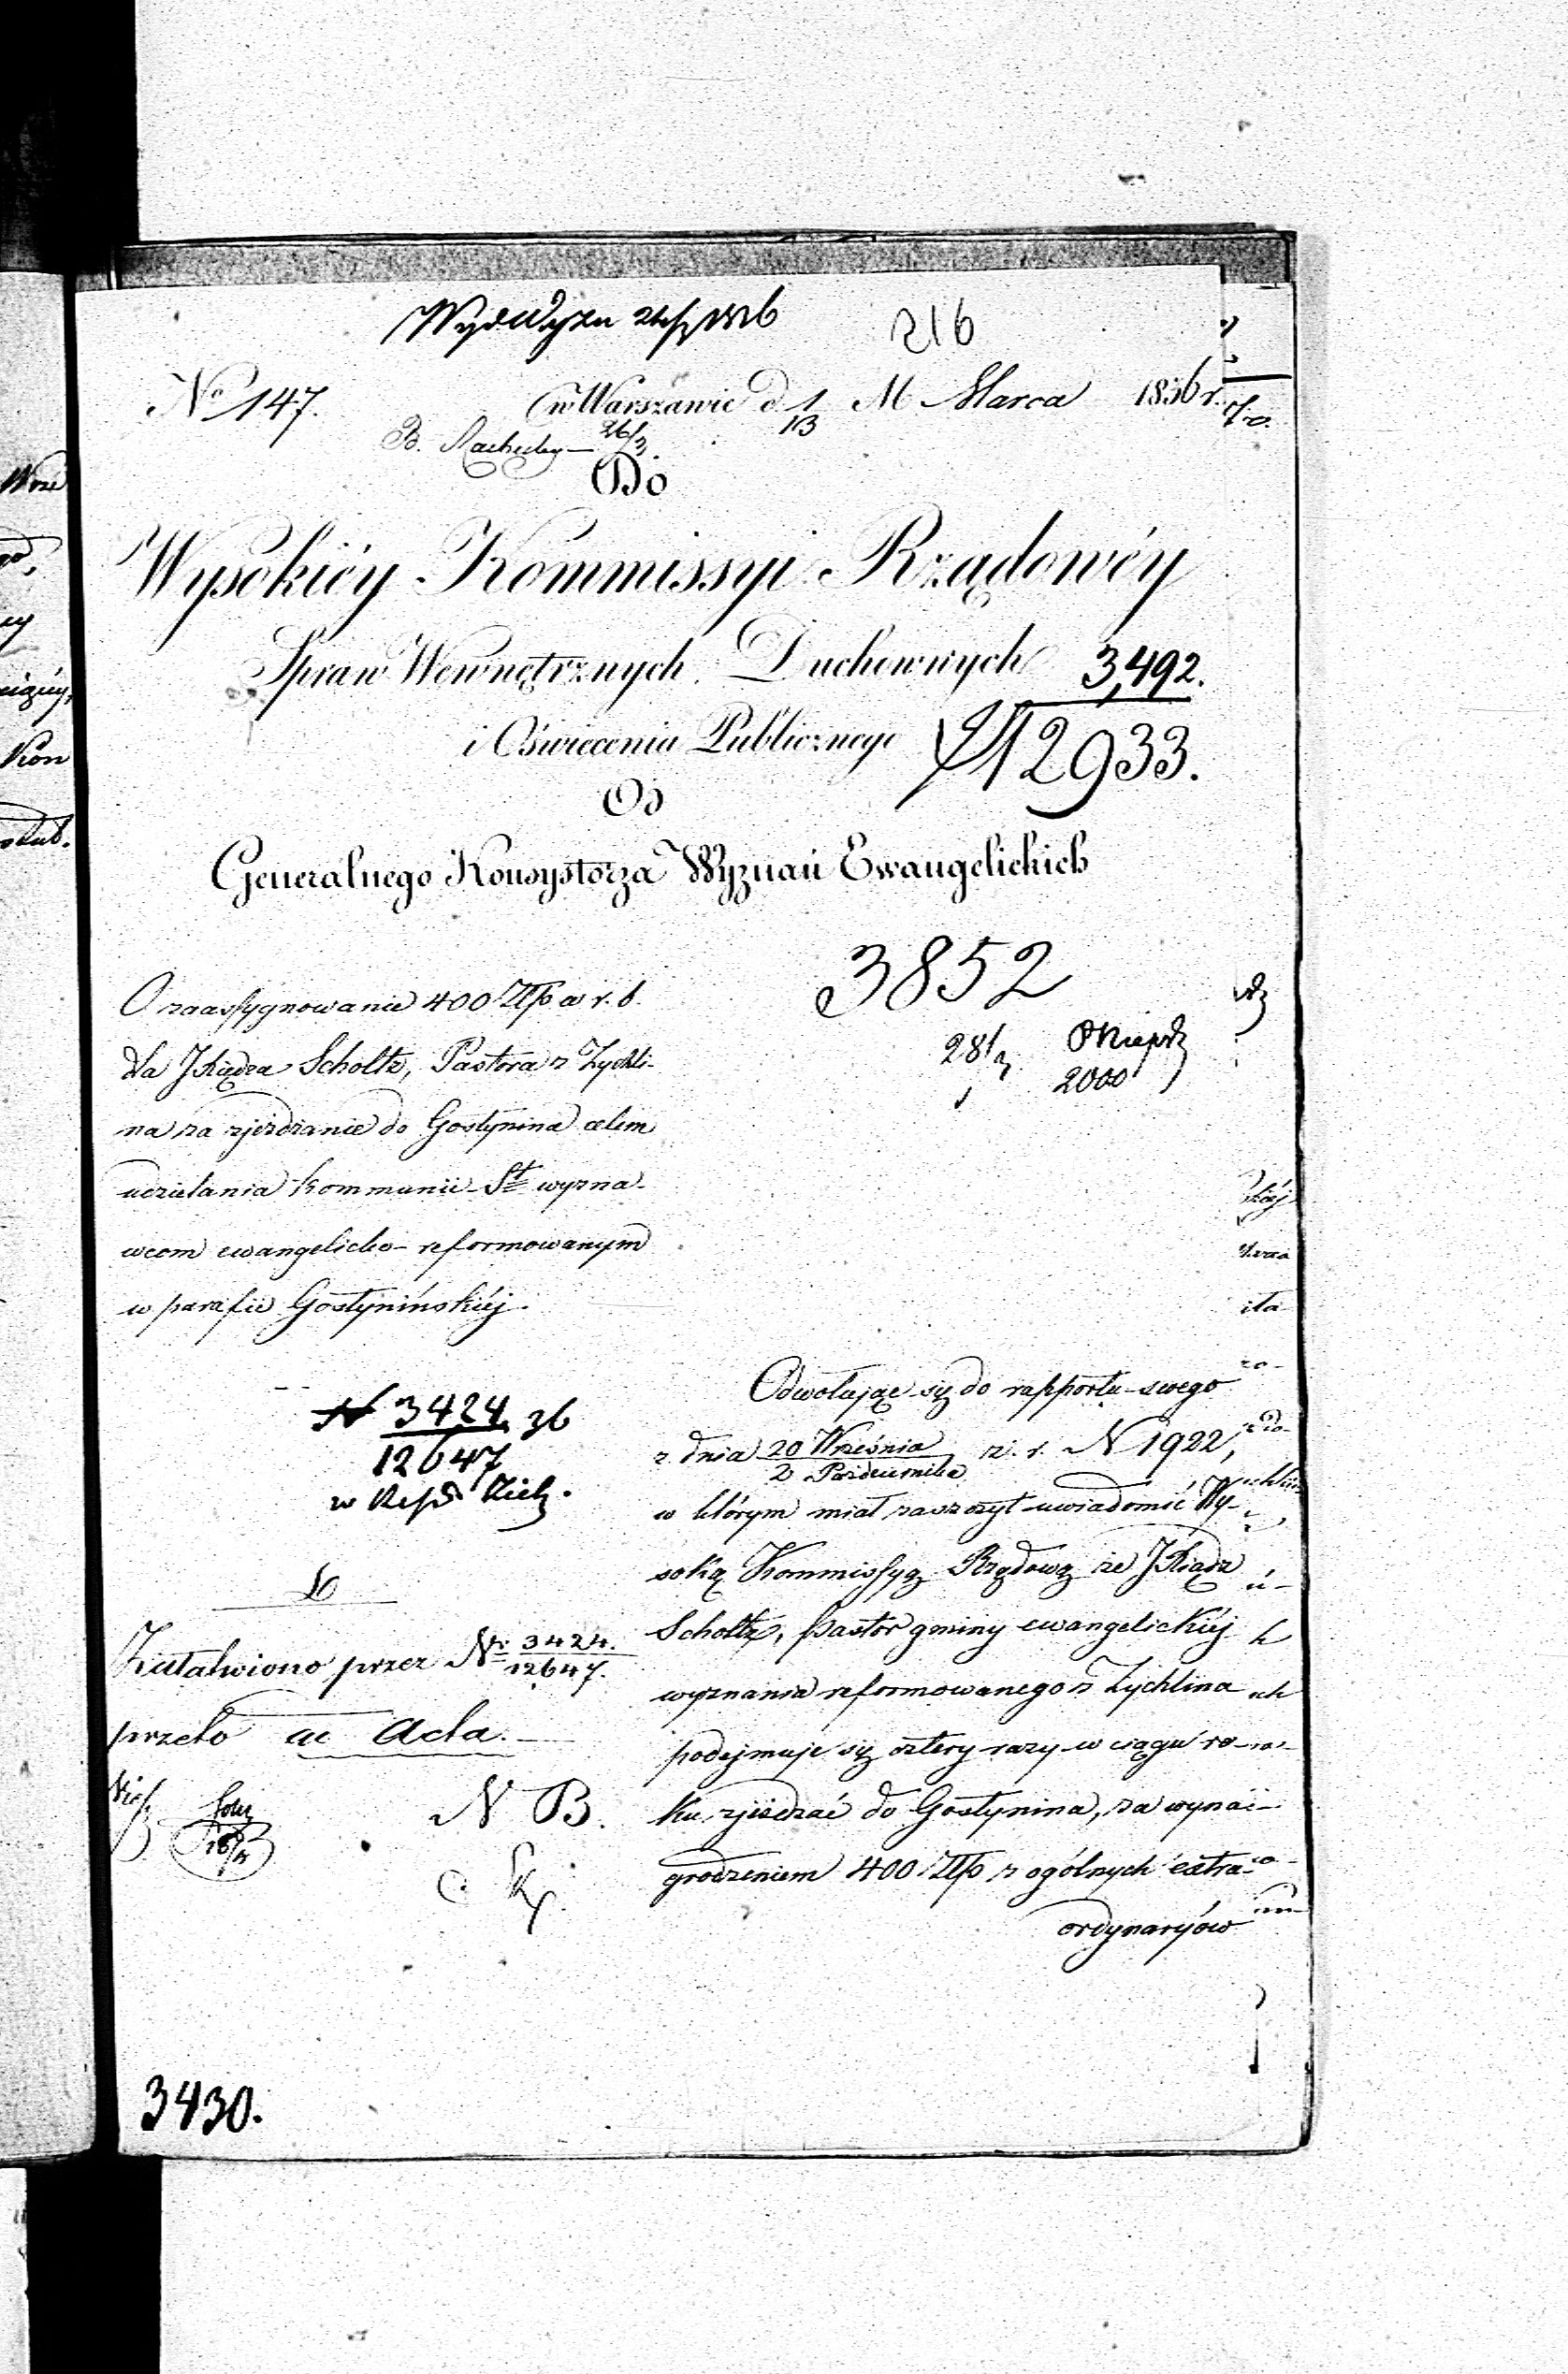 216
No 147.
w Warszawie d. 1/13 M Marca 1836 r.
26/3
Do
Wysokiéy Kommissyi Rządowéy
Spraw Wewnętrznych Duchownych
3,492.
i Oświecenia Publicznego
12933.
Od
Generalnego Konsystorza Wyznań Ewangelickich
3852
O zaassygnowanie 400 Złp w r. b.
dla JXiędza Scholtz, Pastora z Zychli-
na za zjeżdzanie do Gostynina celem
udzielania kommunii Stej wyzna-
wcom ewangelicko-reformowanym
w parafii Gostynińskiéj.
28/3
2000
N 3424/12647 36
Załatwiono przez Nr 3424./12647.
przeto ad Acta.
N B.
Odwołując się do rapportu swego
z dnia 20 Września/2 Października z. r. N 1922,
w którym miał zaszczyt uwiadomić Wy-
soką Kommissyą Rządową że JXiądz
Scholtz, Pastor gminy ewangelickiéj
wyznania reformowanego z Zychlina
podejmuje się cztery razy w ciągu ro-
ku zjeżdzać do Gostynina, za wyna-
grodzeniem 400 Złp z ogólnych extra-
ordynaryów
3430.